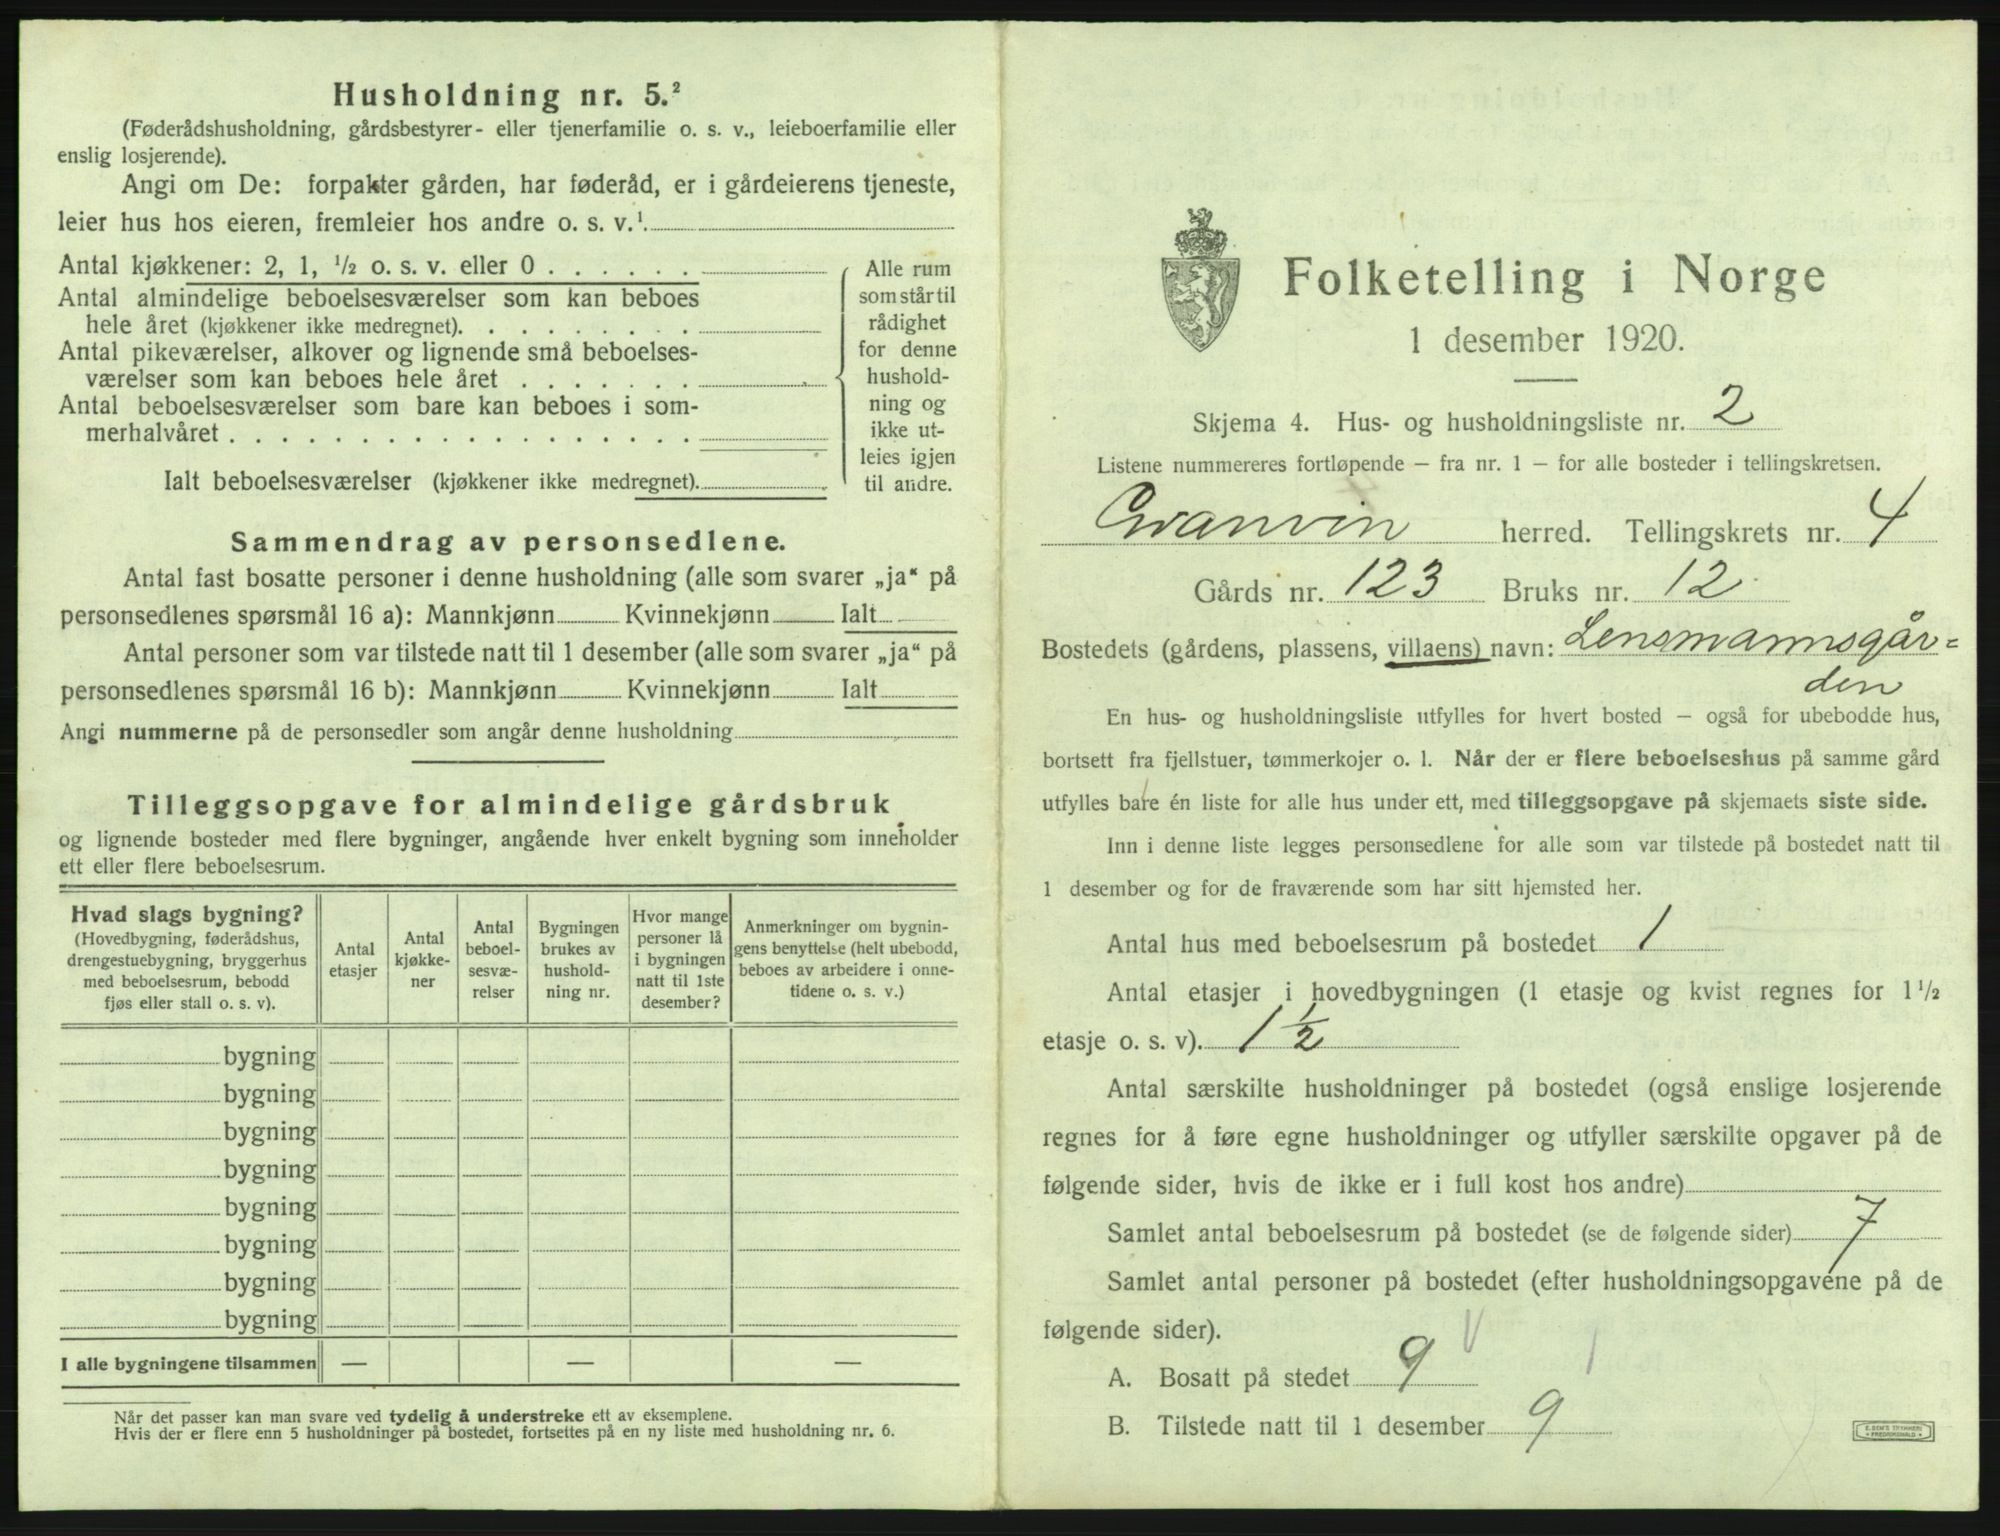 Husholdning nr. 5.²
(Føderådshusholdning, gårdsbestyrer- eller tjenerfamilie o. s. v., leieboerfamilie eller
enslig losjerende).
Angi om De: forpakter gården, har føderåd, er i gårdeierens tjeneste,
leier hus hos eieren, fremleier hos andre o. s. v.¹.
Antal kjøkkener: 2, 1, ½ o. s. v. eller 0 . . . . . .
Antal almindelige beboelsesværelser som kan beboes
hele året (kjøkkener ikke medregnet). . . . . . . . .
Antal pikeværelser, alkover og lignende små beboelses-
værelser som kan beboes hele året . . . . . . .
Antal beboelsesværelser som bare kan beboes i som-
merhalvåret . . . . . . . . . . . . . . . . . .
Ialt beboelsesværelser (kjøkkener ikke medregnet).
Alle rum
som står til
rådighet
for denne
hushold-
ning og
ikke ut-
leies igjen
til andre.
Sammendrag av personsedlene.
Antal fast bosatte personer i denne husholdning (alle som svarer „ja“ på
personsedlenes spørsmål 16 a): Mannkjønn Kvinnekjønn Ialt
Antal personer som var tilstede natt til 1 desember (alle som svarer „ja“ på
personsedlenes spørsmål 16 b): Mannkjønn Kvinnekjønn Ialt
Angi nummerne på de personsedler som angår denne husholdning
Tilleggsopgave for almindelige gårdsbruk
og lignende bosteder med flere bygninger, angående hver enkelt bygning som inneholder
ett eller flere beboelsesrum.
Hvad slags bygning?
(Hovedbygning, føderådshus,
drengestuebygning, bryggerhus
med beboelsesrum, bebodd
fjøs eller stall o. s. v).
Antal
etasjer
Antal
kjøkke-
ner
Antal
beboel-
sesvæ-
relser
Bygningen
brukes av
hushold-
ning nr.
Hvor mange
personer lå
i bygningen
natt til 1ste
desember?
Anmerkninger om bygnin-
gens benyttelse (helt ubebodd,
beboes av arbeidere i onne-
tidene o. s. v.)
bygning
bygning
bygning
bygning
bygning
bygning
bygning
bygning
I alle bygningene tilsammen — — —
Når det passer kan man svare ved tydelig å understreke ett av eksemplene.
Hvis der er flere enn 5 husholdninger på bostedet, fortsettes på en ny liste med husholdning nr. 6.
Folketelling i Norge
1 desember 1920.
Skjema 4. Hus- og husholdningsliste nr. 2
Listene nummereres fortløpende – fra nr. 1 – for alle bosteder i tellingskretsen.
Granvin herred. Tellingskrets nr. 4
Gårds nr. 123 Bruks nr. 12
Bostedets (gårdens, plassens, villaens) navn: Lensmannsgår=
den
En hus- og husholdningsliste utfylles for hvert bosted – også for ubebodde hus,
bortsett fra fjellstuer, tømmerkojer o. l. Når der er flere beboelseshus på samme gård
utfylles bare én liste for alle hus under ett, med tilleggsopgave på skjemaets siste side.
Inn i denne liste legges personsedlene for alle som var tilstede på bostedet natt til
1 desember og for de fraværende som har sitt hjemsted her.
Antal hus med beboelsesrum på bostedet 1
Antal etasjer i hovedbygningen (1 etasje og kvist regnes for 1½
etasje o. s. v). 1½
Antal særskilte husholdninger på bostedet (også enslige losjerende
regnes for å føre egne husholdninger og utfyller særskilte opgaver på de
følgende sider, hvis de ikke er i full kost hos andre)
Samlet antal beboelsesrum på bostedet (se de følgende sider) 7
Samlet antal personer på bostedet (efter husholdningsopgavene på de
følgende sider).
A. Bosatt på stedet 9
B. Tilstede natt til 1 desember 9